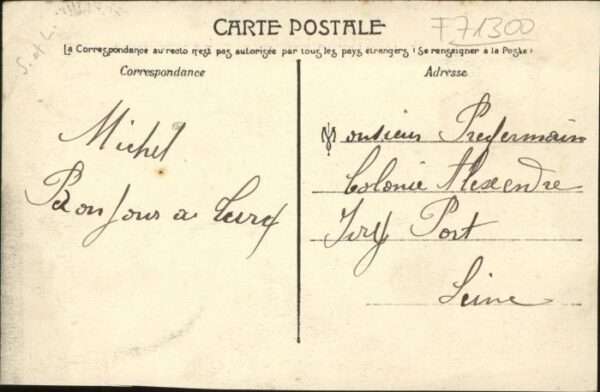 CARTE POSTALE
F71300
S. et L.
La Correspondance au recto n'est pas autorisée par tous les pays étrangers (Se renseigner à la Poste)
Correspondance
Adresse
Michel
Bonjour a
Monsieur Pregermain
Colonie Alexendre
Ivry Port
Seine